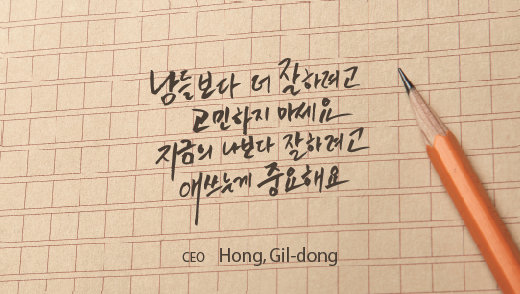 남들보다 더 잘하려고
고민하지 마세요
지금의 나보다 잘하려고
애쓰는게 중요해요
CEO Hong, Gil-dong